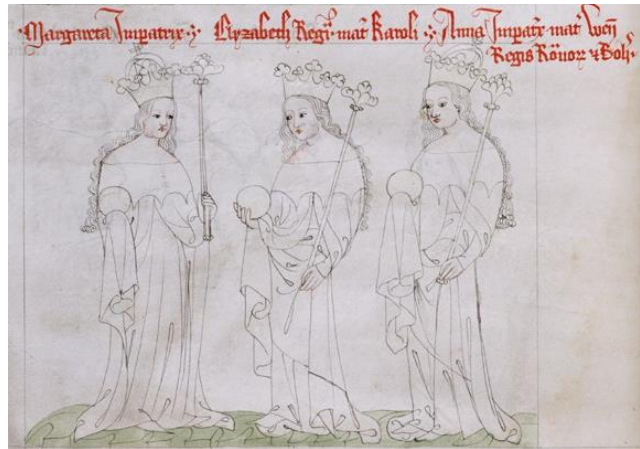 ·Margareta Imp̄atrix· Elyzabeth Regī· mat̄ Karoli · Anna Imp̄at᷑· mat̄ W̄cīi
Regis Rōnorꝫ ⁊ Boh̄·